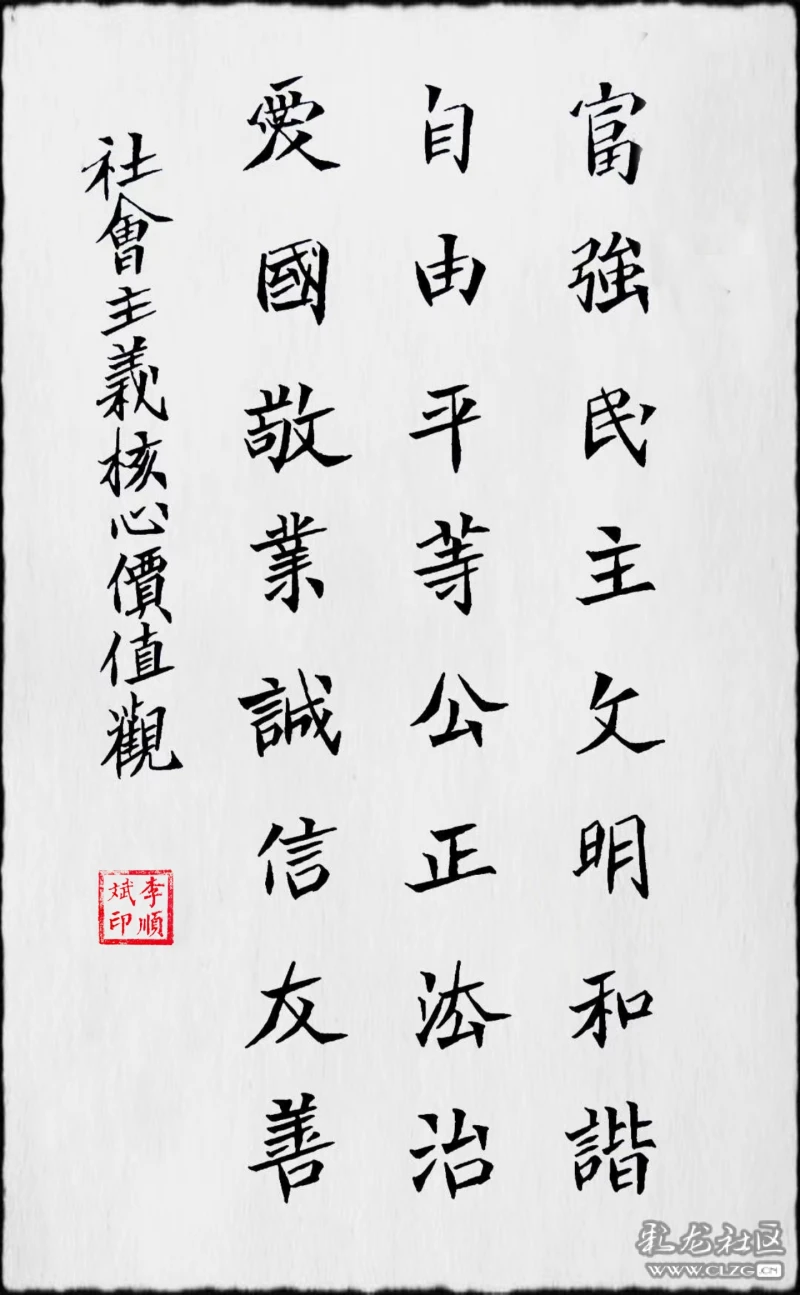 富強民主文明和諧
自由平等公正法治
愛國敬業誠信友善
社會主義核心價值觀
李順斌印
彩龙社区
WWW.CLZG.CN